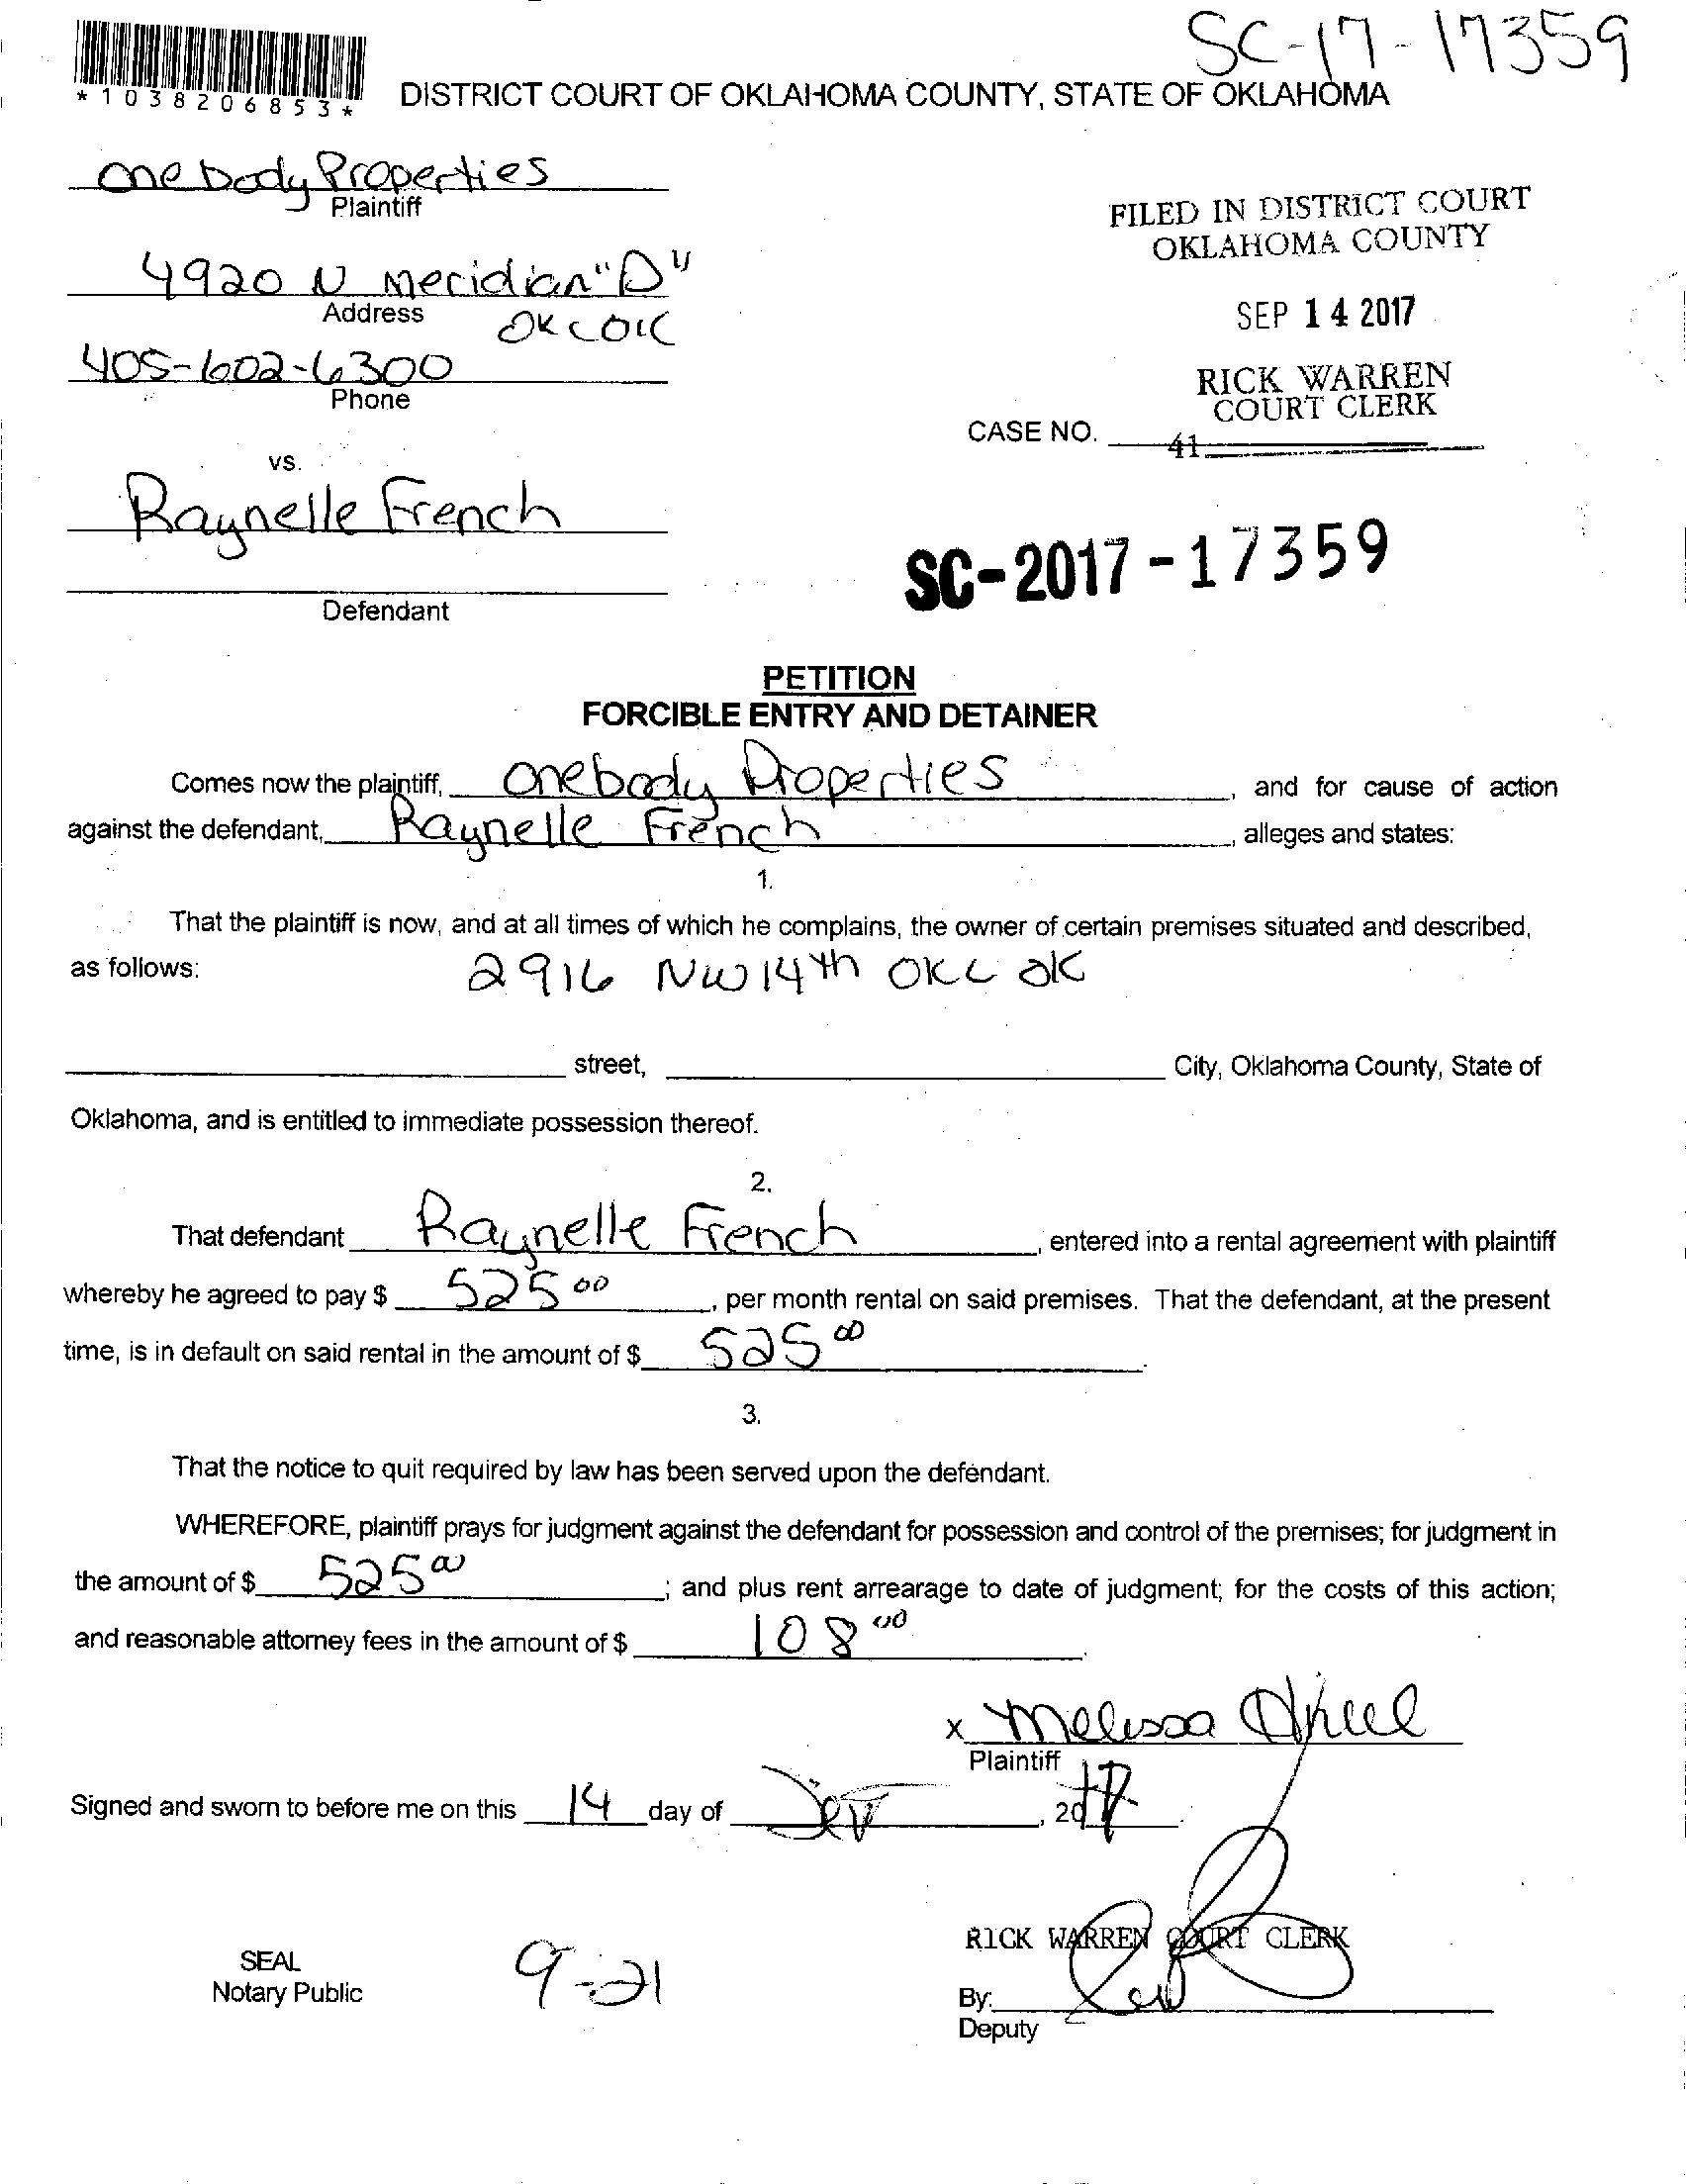 SC-17-17359
*1038206853*
DISTRICT COURT OF OKLAHOMA COUNTY, STATE OF OKLAHOMA
One body Properties
Plaintiff
4920 N Meridian "D"
Address
OKC OK
405-602-6300
Phone
FILED IN DISTRICT COURT
OKLAHOMA COUNTY
SEP 14 2017
RICK WARREN
COURT CLERK
CASE NO.
41
vs.
Raynelle French
Defendant
SC-2017-17359
PETITION
FORCIBLE ENTRY AND DETAINER
Comes now the plaintiff, Onebody Properties, and for cause of action
against the defendant, Raynelle French, alleges and states:
1.
That the plaintiff is now, and at all times of which he complains, the owner of certain premises situated and described,
as follows: 2916 NW 14th OKC OK
street, City, Oklahoma County, State of
Oklahoma, and is entitled to immediate possession thereof.
2.
That defendant Raynelle French, entered into a rental agreement with plaintiff
whereby he agreed to pay $ 525 00, per month rental on said premises. That the defendant, at the present
time, is in default on said rental in the amount of $ 525 00.
3.
That the notice to quit required by law has been served upon the defendant.
WHEREFORE, plaintiff prays for judgment against the defendant for possession and control of the premises; for judgment in
the amount of $ 525 00; and plus rent arrearage to date of judgment; for the costs of this action;
and reasonable attorney fees in the amount of $ 108 00.
x Melissa
Plaintiff
Signed and sworn to before me on this 14 day of Sep, 2017
RICK WARREN COURT CLERK
SEAL
Notary Public
9-21
By:
Deputy